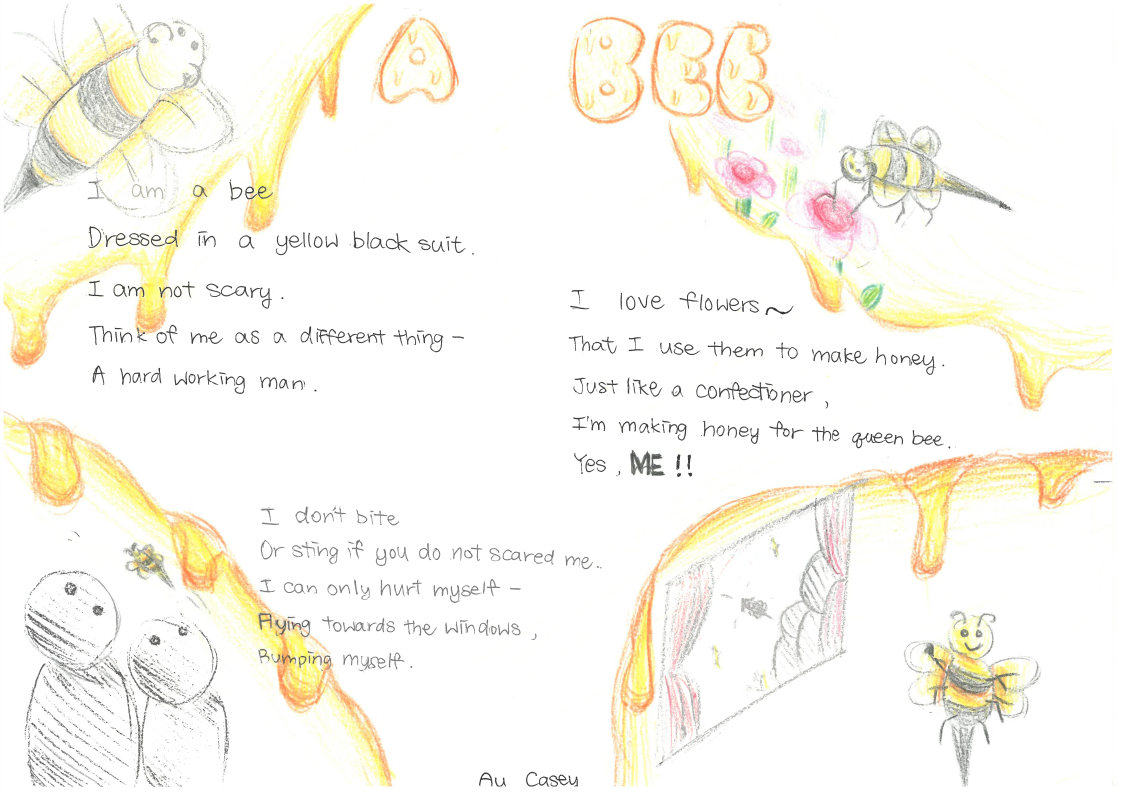 A BEE
I am a bee
Dressed in a yellow black suit.
I am not scary.
Think of me as a different thing –
A hard working man.
I love flowers~
That I use them to make honey.
Just like a confectioner,
I'm making honey for the queen bee.
Yes, ME!!
I don't bite
Or sting if you do not scared me..
I can only hurt myself –
Flying towards the windows,
Bumping myself.
Au Casey